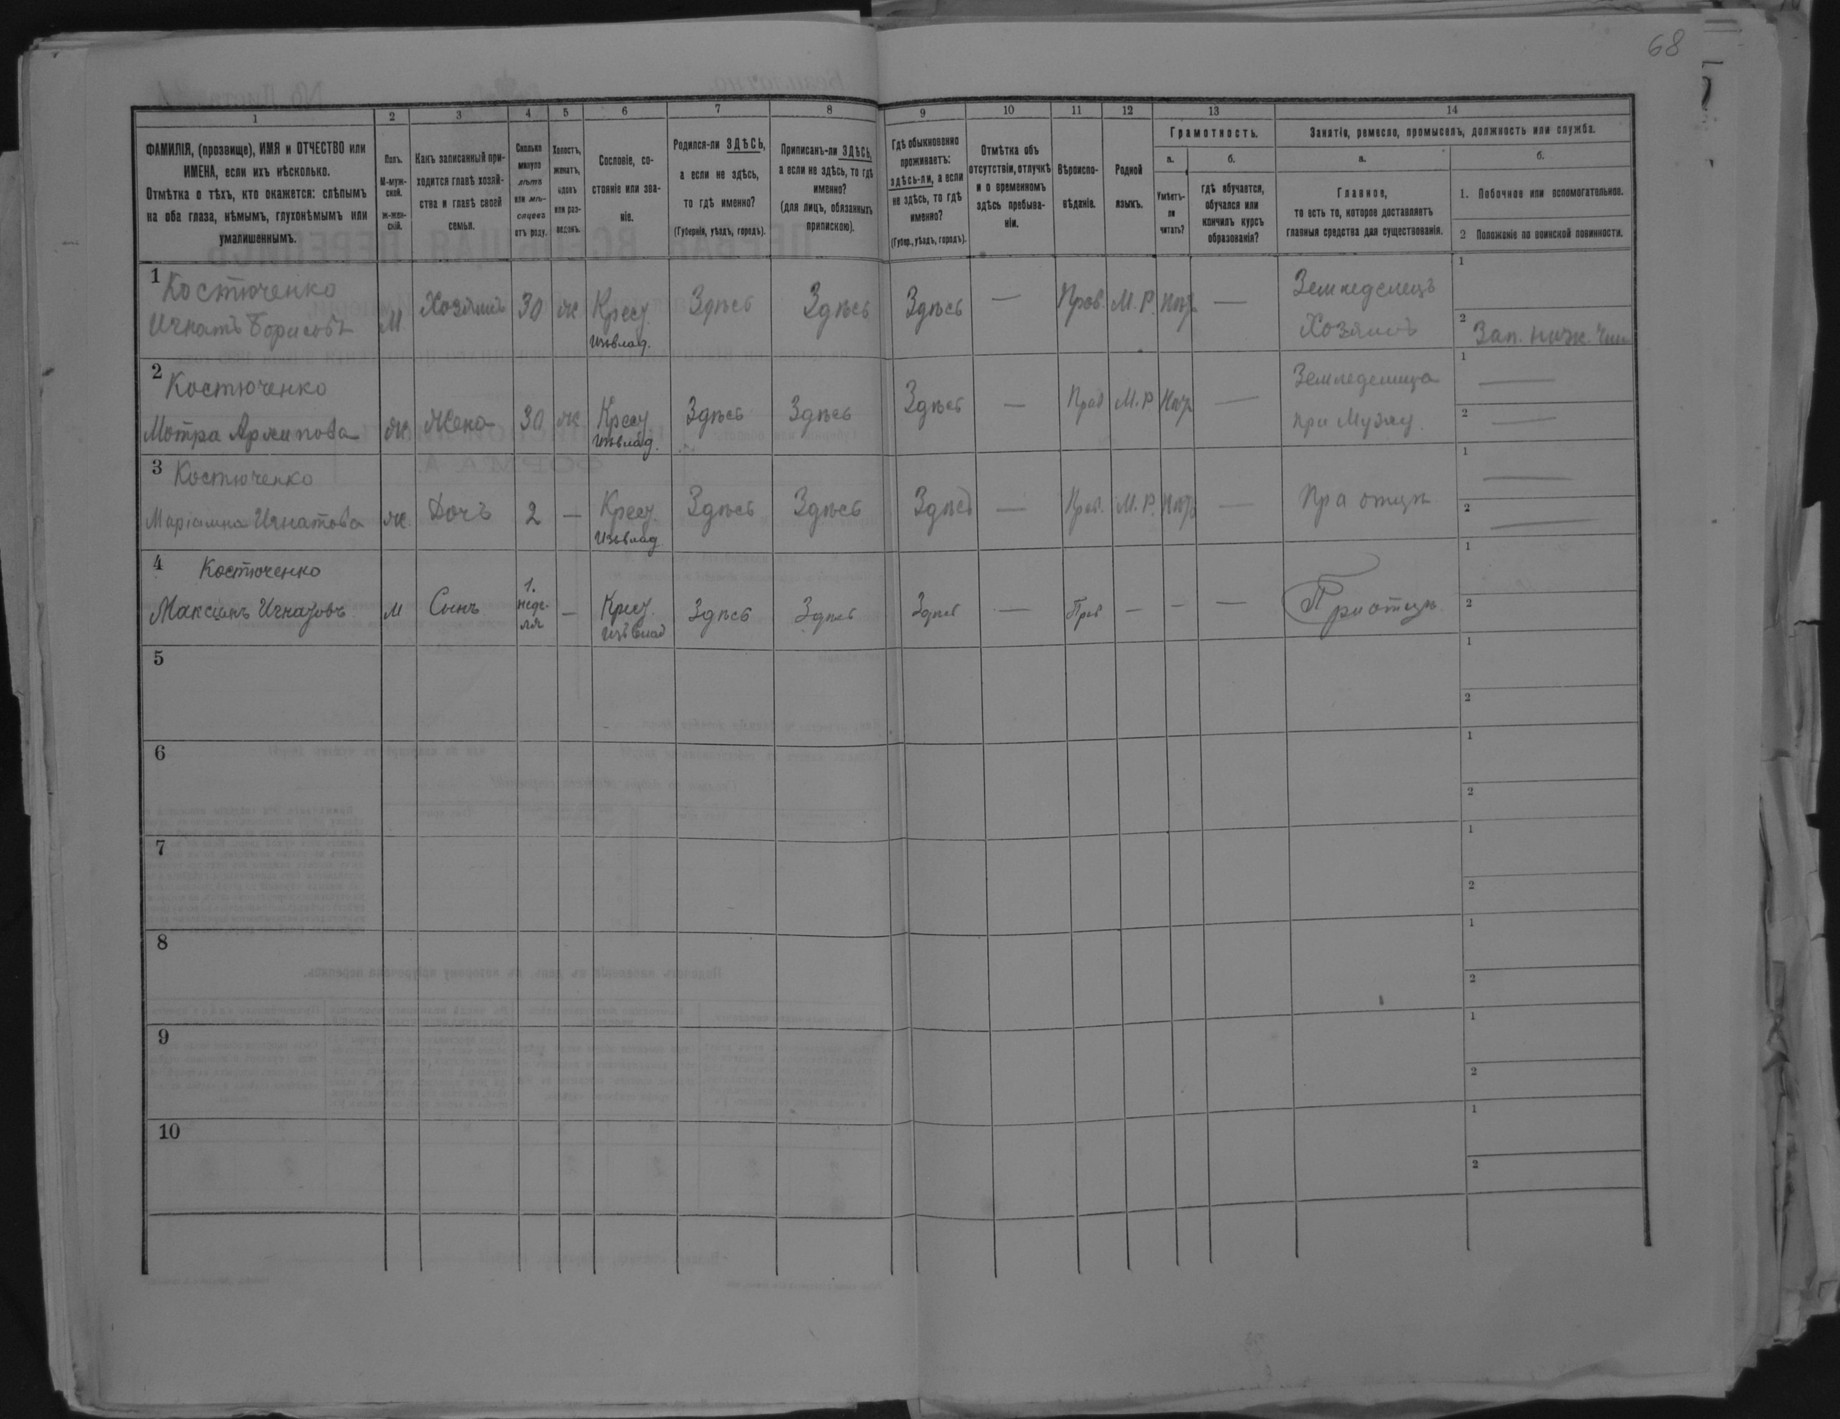 68
1 2 3 4 5 6 7 8 9 10 11 12 13 14
ФАМИЛІЯ, (прозвище), ИМЯ и ОТЧЕСТВО или ИМЕНА, если ихъ нѣсколько.
Отмѣтка о тѣхъ, кто окажется: слѣпымъ на оба глаза, нѣмымъ, глухонѣмымъ или умалишеннымъ.
Полъ.
М-мужской.
ж-женскій.
Какъ записанный приходится главѣ хозяйства и главѣ своей семьи.
Сколько минуло лѣтъ или мѣсяцевъ отъ роду.
Холостъ, женатъ, вдовъ или разведенъ.
Сословіе, состояніе или званіе.
Родился-ли ЗДѢСЬ, а если не здѣсь, то гдѣ именно?
(Губернія, уѣздъ, городъ).
Приписанъ-ли ЗДѢСЬ, а если не здѣсь, то гдѣ именно?
(для лицъ, обязанныхъ припискою).
Гдѣ обыкновенно проживаетъ: здѣсь-ли, а если не здѣсь, то гдѣ именно?
(Губер., уѣздъ, городъ).
Отмѣтка объ отсутствіи, отлучкѣ и о временномъ здѣсь пребываніи.
Вѣроисповѣданіе.
Родной языкъ.
Грамотность.
а.
Умѣетъ-ли читать?
б.
гдѣ обучается, обучался или кончилъ курсъ образованія?
Занятіе, ремесло, промыселъ, должность или служба.
а.
Главное,
то есть то, которое доставляетъ главныя средства для существованія.
б.
1. Побочное или вспомогательное.
2 Положеніе по воинской повинности.
1 Костюченко
Игнатъ Борисовъ М Хозяинъ 30 ж Крест. Здѣсь Здѣсь Здѣсь — Прав. М.Р. — Земледелецъ
Хозяинъ
1
2 Зап. ниж. Чин
2 Костюченко
Мотра Архипова ж. Жена 30 ж Здѣсь Здѣсь Здѣсь — Прав М.Р — Земледелица
при Мужу.
1 —
2 —
3 Костюченко
Маріамна Игнатова ж. Дочъ 2 — Здѣсь Здѣсь Здѣсь — Прав. М.Р. — При отцѣ
1 —
2 —
4 Костюченко
Максимъ Игнатовъ М Сынъ 1. неделя — Здѣсь Здѣсь Здѣсь — Прав — — — При отцѣ
1
2
5
1
2
6
1
2
7
1
2
8
1
2
9
1
2
10
1
2